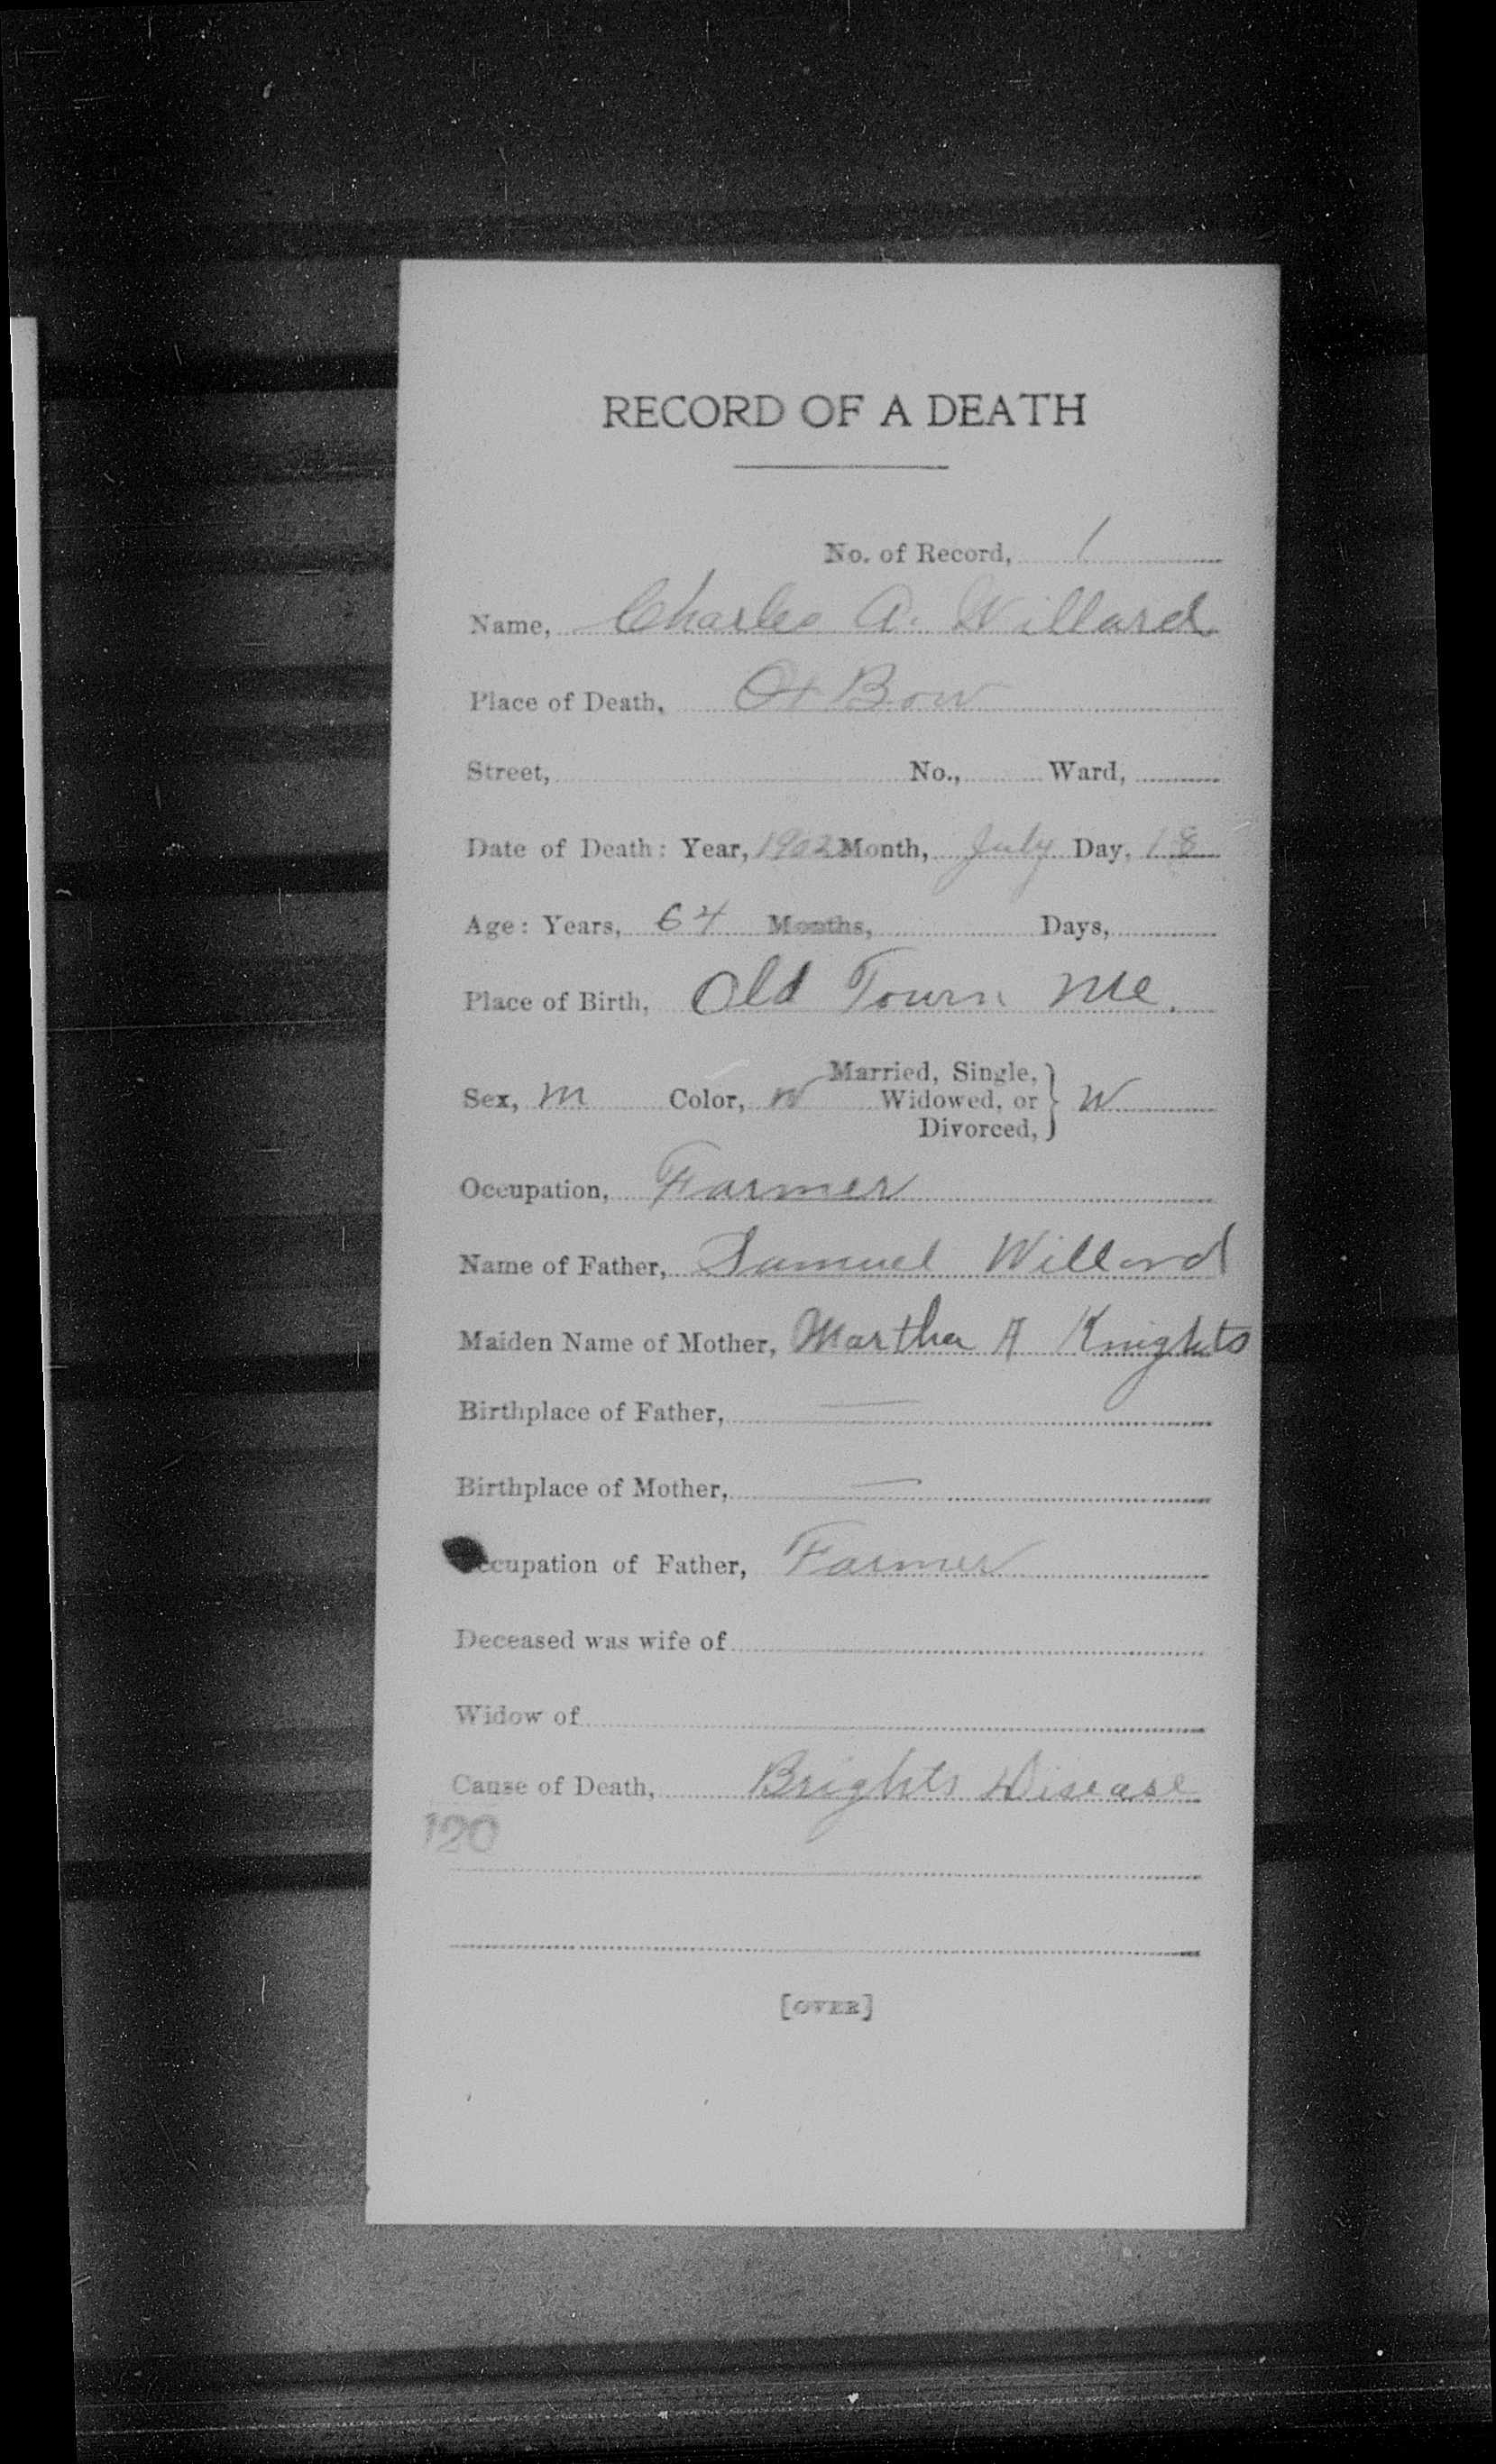 RECORD OF A DEATH
No. of Record, 1
Name, Charles A. Willard
Place of Death, Ox Bow
Street, No., Ward,
Date of Death: Year, 1902 Month, July Day, 18
Age: Years, 64 Months, Days,
Place of Birth, Old Town Me.
Sex, M Color, W Married, Single, Widowed, or Divorced, W
Occupation, Farmer
Name of Father, Samuel Willard
Maiden Name of Mother, Martha A Knights
Birthplace of Father, —
Birthplace of Mother, —
Occupation of Father, Farmer
Deceased was wife of
Widow of
Cause of Death, Brights Disease
120
[OVER]